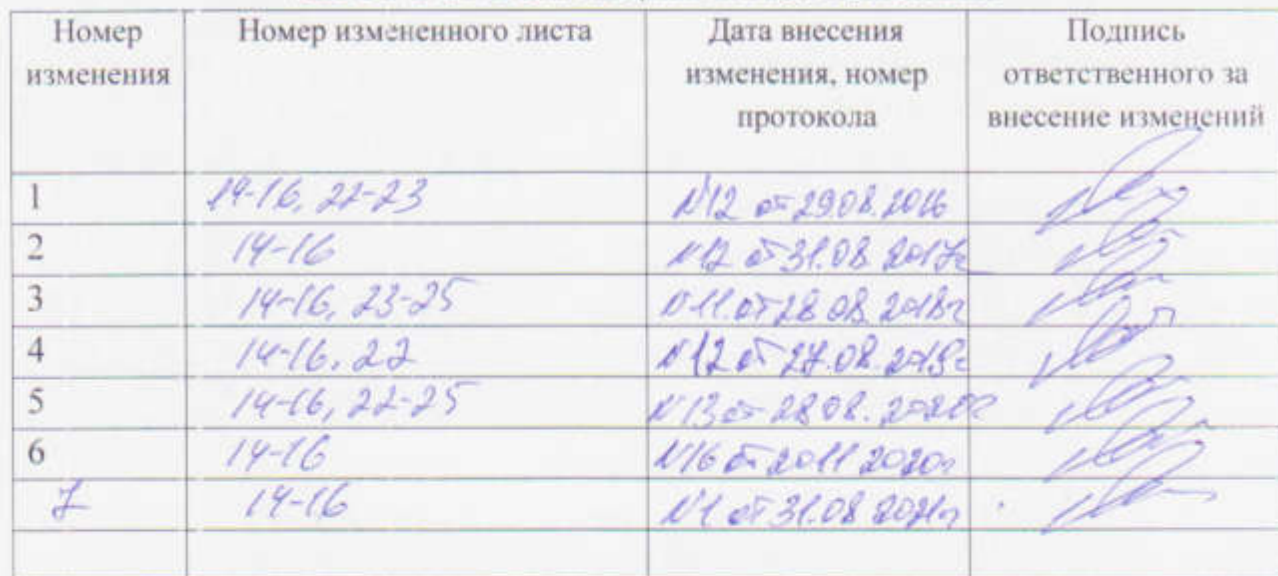 Номер изменения Номер измененного листа Дата внесения изменения, номер протокола Подпись ответственного за внесение изменений
1 14-16, 22-23 №12 от 29.08.2016
2 14-16 №12 от 31.08.2017г
3 14-16, 23-25 №11 от 28.08.2018г
4 14-16, 22 №12 от 27.08.2019г
5 14-16, 22-25 №13 от 28.08.2020г
6 14-16 №16 от 20.11.2020г
7 14-16 №1 от 31.08.2021г